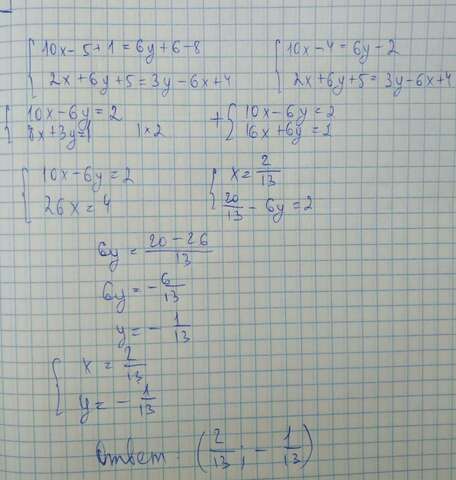 10x-5+1=6y+6-8
2x+6y+5=3y-6x+4
10x-4=6y-2
2x+6y+5=3y-6x+4
10x-6y=2
8x+3y=-1 | ×2
+ 10x-6y=2
16x+6y=2
10x-6y=2
26x=4
x=2/13
20/13-6y=2
6y=20-26/13
6y=-6/13
y=-1/13
x=2/13
y=-1/13
Ответ: (2/13; -1/13)